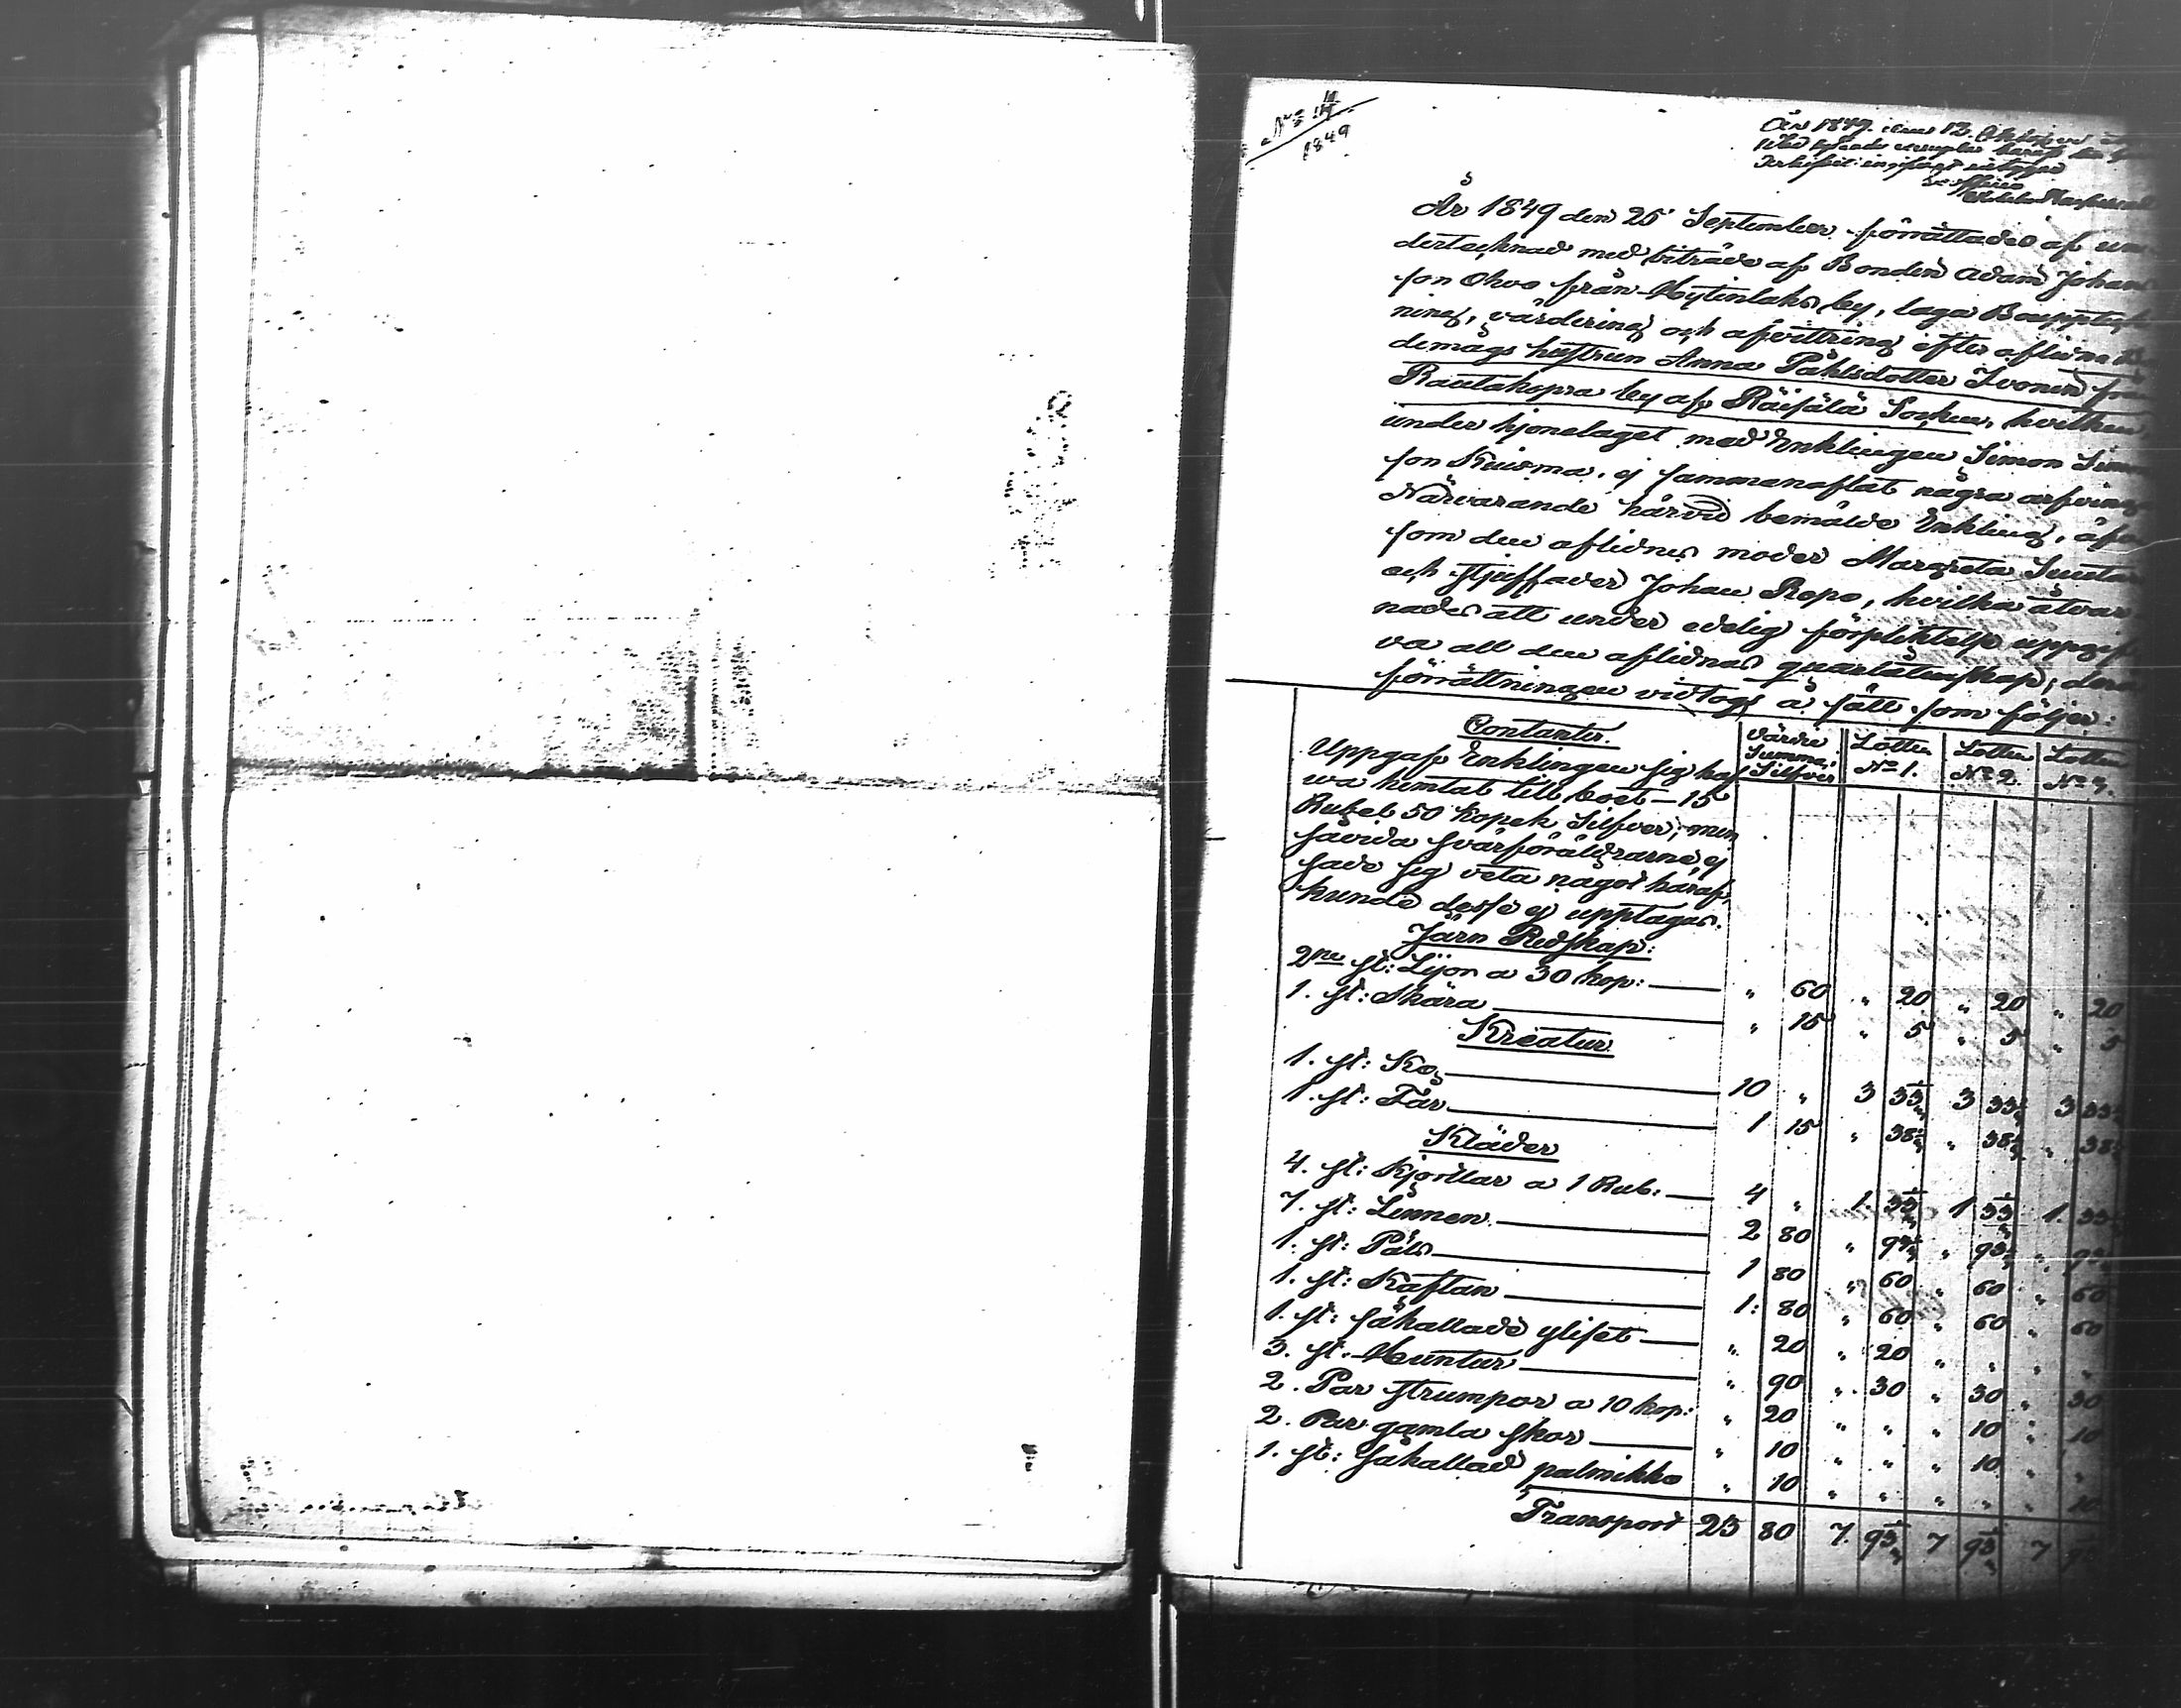 1849
År 1849 den 25 September förrättades af un
dertecknad med biträde af Bonden Adam Johans
son Ohvo från Myllinlaks by, laga Bouppteck
ning, värdering och afvittring efter aflidna
demågs hustrun Anna Påhlsdotter Ivonen från
Rautakopra by af Räisälä Socken, hvilken
under hjonelaget med Enklingen Simon Simon
son Kuisma, ej sammanaflat några arfvingar
Närvarande härvid bemälde Enkling, äfven
som den aflidnes moder Margreta Suutar
och stjuffader Johan Repo, hvilka åtvar
nades att under edelig förpliktelse uppgif
va all den aflidnas quarlåtenskap; dera
förrättningen vidtogs å sätt som följer:
Contanter. Värde Summa Silfver Lotten No 1. Lotten No 2. Lotten No 3.
Uppgaf Enklingen sig haf
wa hemtat till boet – 15
Rubel 50 kopek Silfver; men
såvida svärföräldrarne ej
sade sig veta något häraf,
kunde desse ej upptagas.
Järn Redskap:
2ne st: Lijor a 30 kop: " 60 " 20 " 20 " 20
1. st: Skära " 15 " 5 " 5 " 5
Kreatur
1. st: Ko 10 " 3 33 1/3 3 33 1/3 3 33 1/3
1. st: Får 1 15 " 38 1/3 " 38 1/3 " 38 1/3
Kläder
4. st: Kjortlar a 1 Rub: 4 " 1 33 1/3 1 33 1/3 1. 33 1/3
7. st: Linnen 2 80 " 93 1/3 " 93 1/3 " 93 1/3
1. st: Päls 1 80 " 60 " 60 " 60
1. st: Kaftan 1: 80 " 60 " 60 " 60
1. st: såkallade yliset " 20 " 20 " " " "
3. st. Huntur " 90 " 30 " 30 " 30
2. Par strumpor a 10 kop: " 20 " " " 10 " 10
2. Par gamla skor " 10 " " " 10 " "
1. st: såkallad palmikko " 10 " " " " " 10
Transport 23 80 7. 93 1/3 7 93 1/3 7